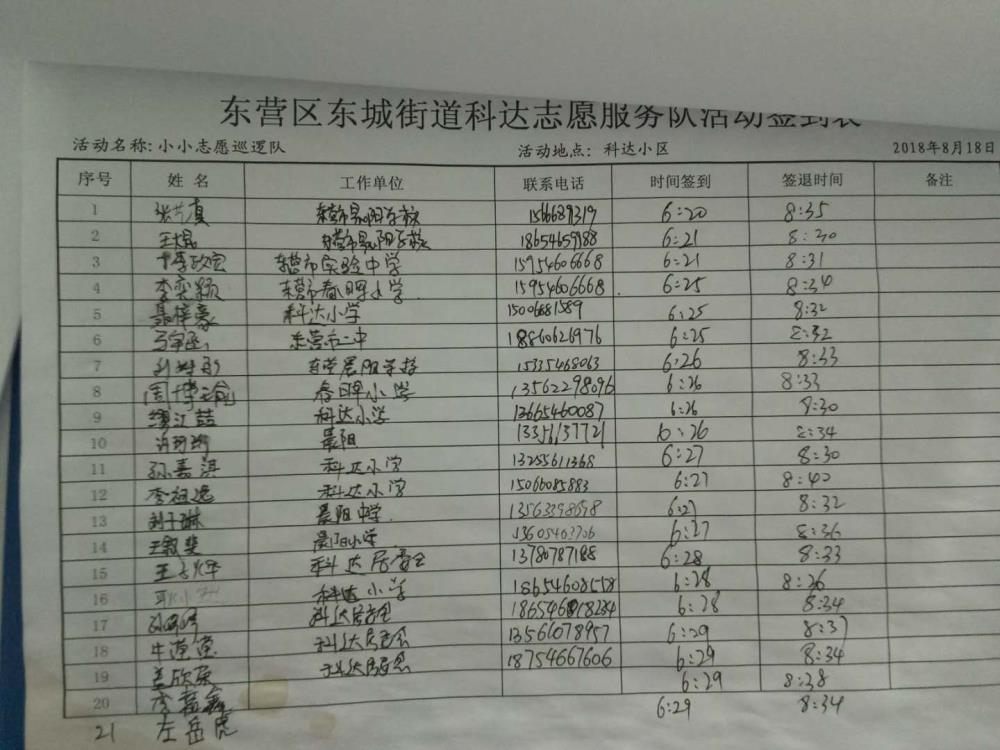 东营区东城街道科达志愿服务队活动签到表
活动名称:小小志愿巡逻队 活动地点: 科达小区 2018年8月18日
序号 姓 名 工作单位 联系电话 时间签到 签退时间 备注
1 6:20 8:35
2 18654659988 6:21 8:30
3 东营市实验中学 15954606668 6:21 8:31
4 李奕颖 东营市春晖小学 15954606668 6:25 8:34
5 聂梓豪 科达小学 15006681589 6:25 8:32
6 东营市一中 18860626976 6:25 8:32
7 15335468063 6:26 8:33
8 周博瑜 春晖小学 13562298096 6:26 8:33
9 科达小学 13665460087 6:26 8:30
10 晨阳 6:26 8:34
11 孙嘉淇 科达小学 13255611368 6:27 8:30
12 李祖逸 科达小学 15066085883 6:27 8:40
13 刘子琳 晨阳中学 6:27 8:32
14 王毅斐 晨阳小学 6:27 8:36
15 科达居委会 13780787188 6:28 8:33
16 科达小学 18654608558 6:28 8:26
17 科达居委会 6:28 8:34
18 科达居委会 13566078957 6:29 8:37
19 姜欣荣 科达居委会 18754667606 6:29 8:34
20 李蕊鑫 6:29 8:38
21 左岳虎 6:29 8:34